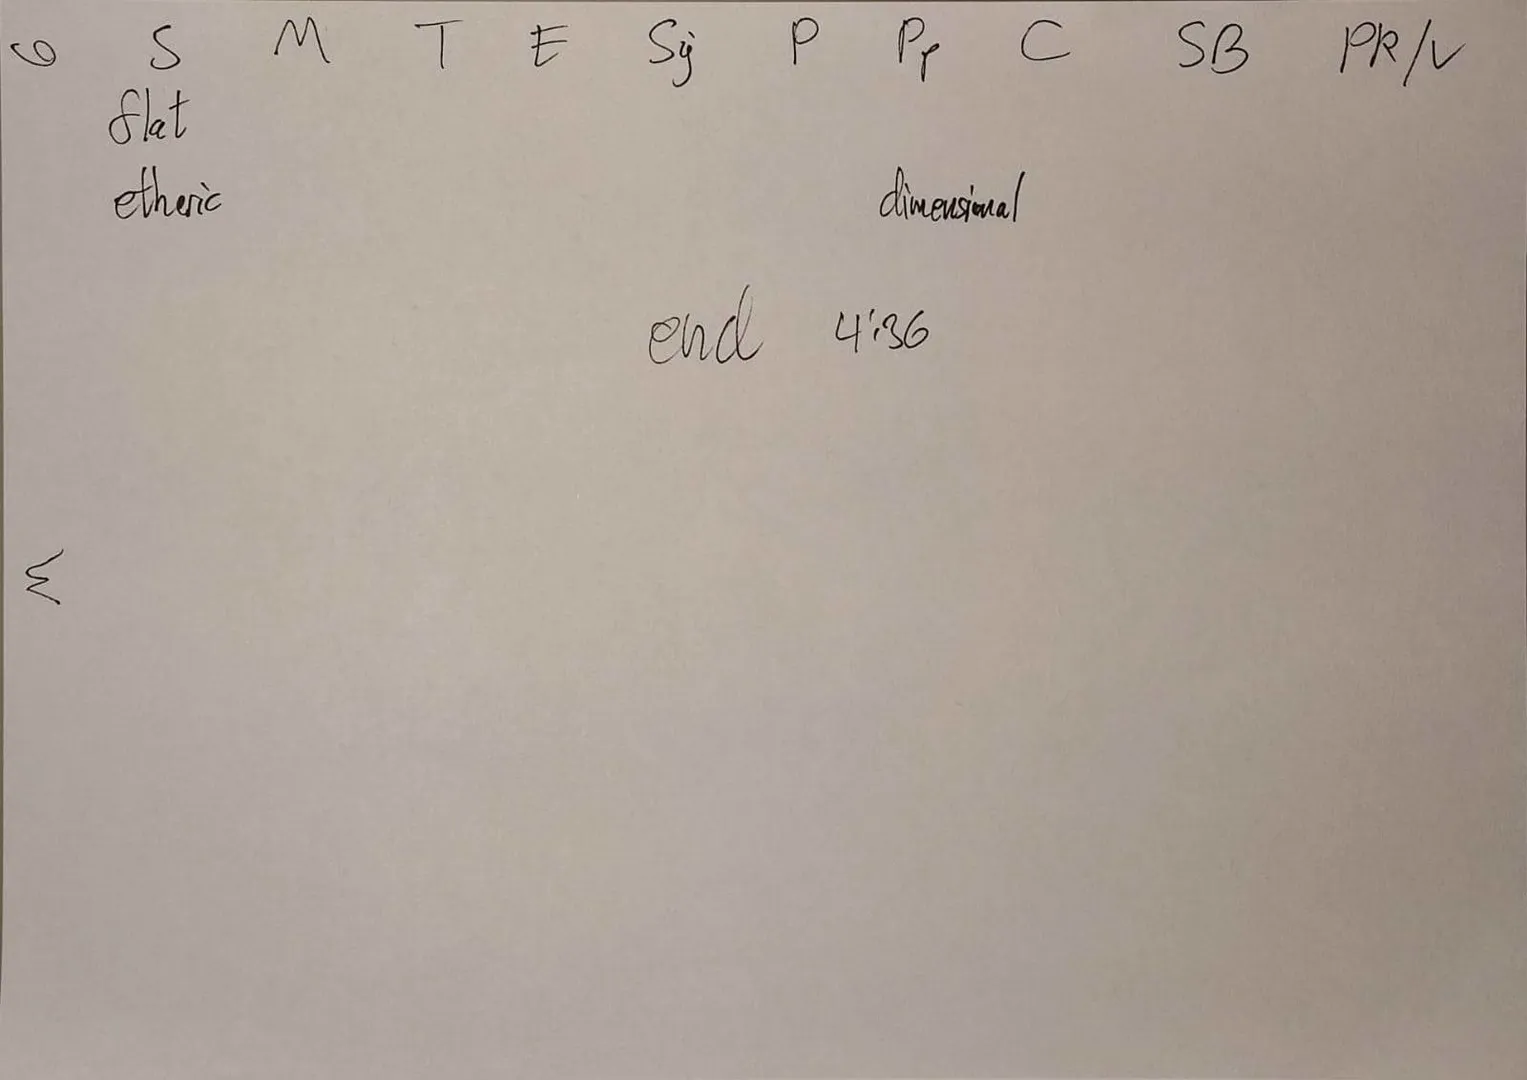 6 S M T E Sy P Pp C SB PR/V
flat
etheric dimensional
end 4:36
3